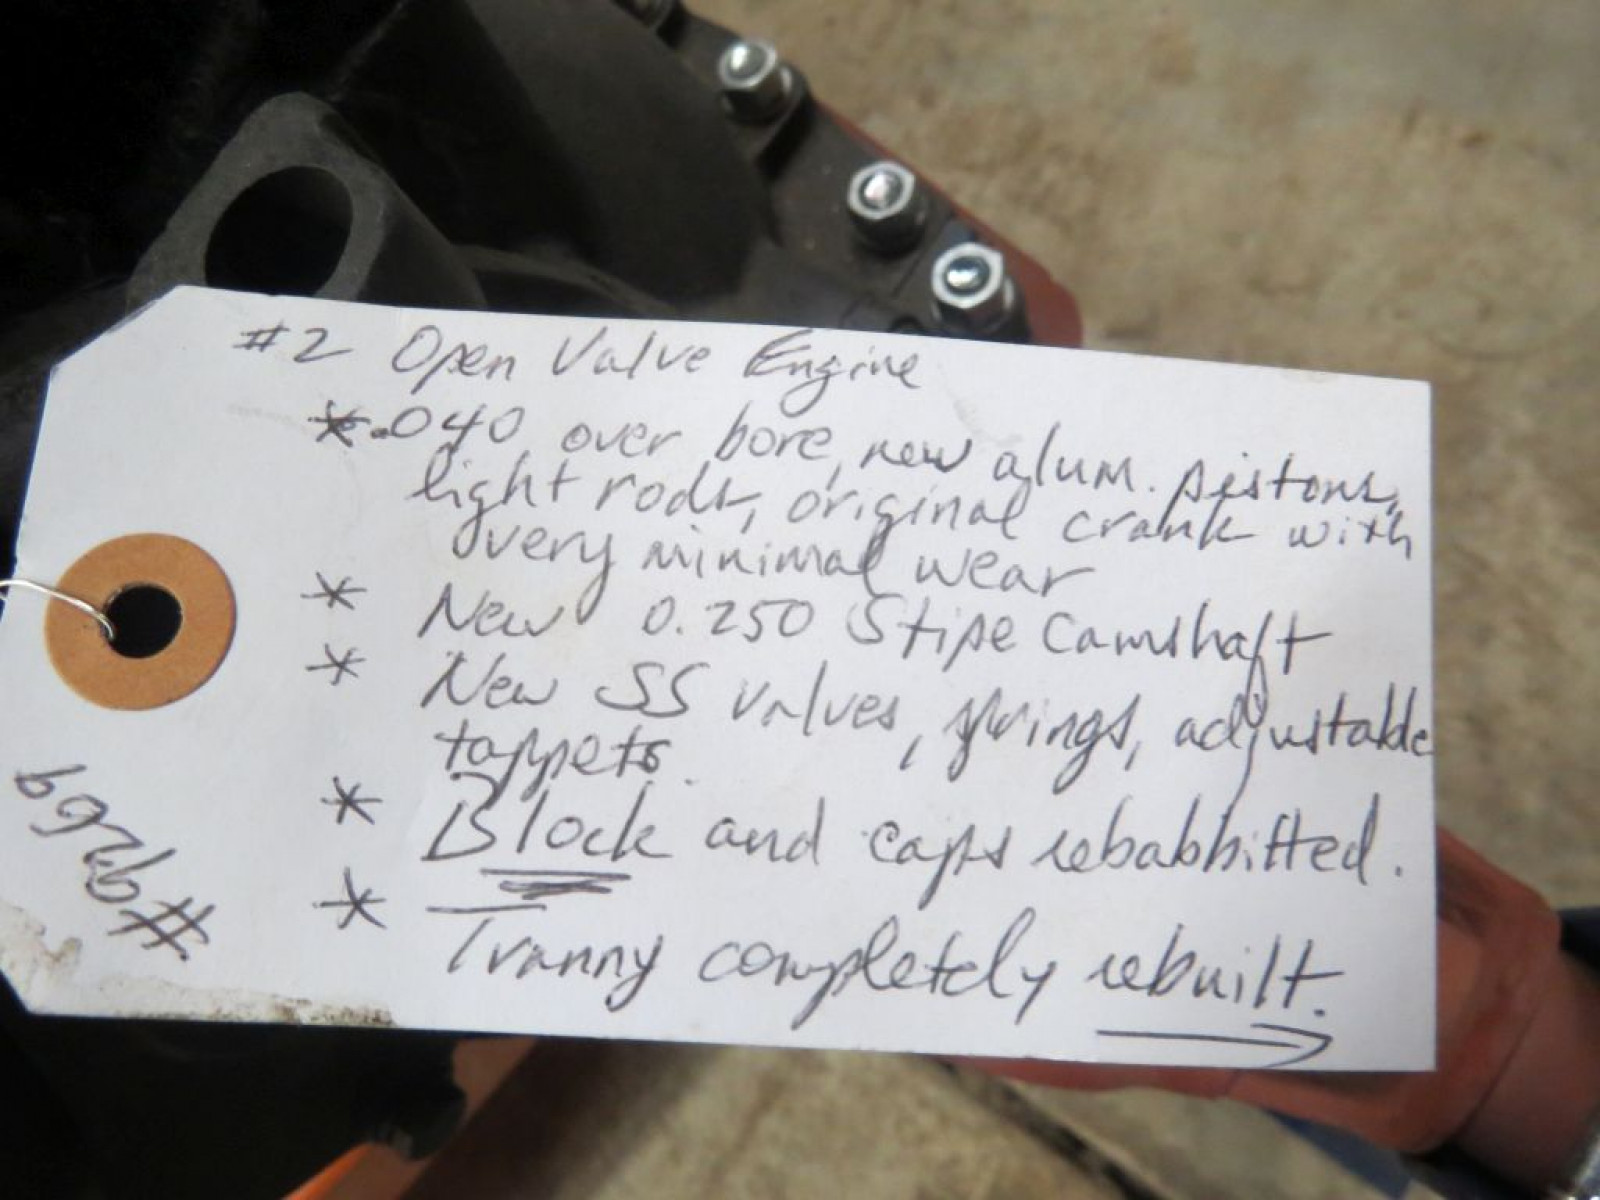 #2 Open Valve Engine
* .040 over bore, new alum. pistons,
light rods, original crank with
very minimal wear
* New 0.250 Stipe Camshaft
* New SS valves, springs, adjustable
tappets.
* Block and caps rebabbitted.
* Tranny completely rebuilt.
#9269